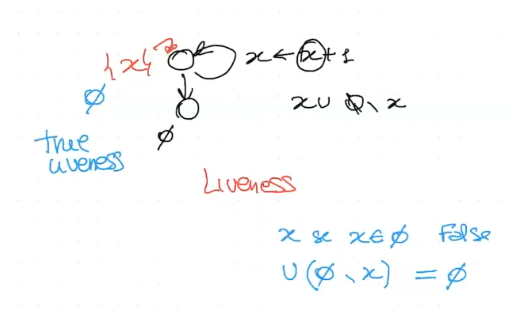 {x} x ← x + 1
∅ x ∪ ∅ \ x
∅
True
Liveness
Liveness
x se x ∈ ∅ False
∪ (∅ \ x) = ∅